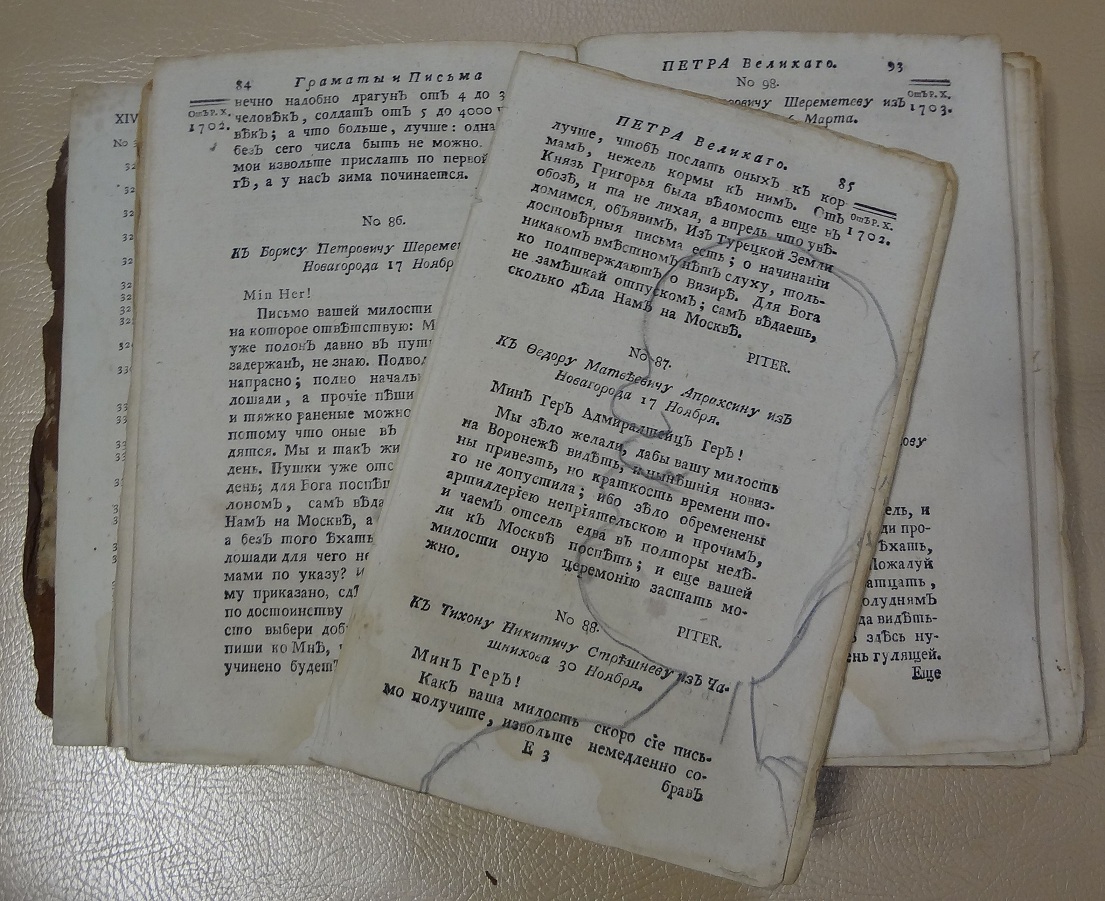 XIV
No
84
Граматы и Письма
ОтЪ Р. Х.
1702.
нечно надобно драгунЪ отЪ 4 до
человѣкЪ, солдатЪ отЪ 5 до 4000
вѣкЪ; а что больше, лучше: одна
безЪ сего числа быть не можно.
мои извольте прислать по первой
гѣ, а у насЪ зима починается.
No 86.
КЪ Борису Петровичу Шереме
Новагорода 17 Ноябр
Min Her!
Письмо вашей милости
на которое отвѣтствую: М
уже полонЪ давно въ пут
задержанЪ, не знаю. Подво
напрасно; полно началь
лошади, а прочіе пѣши
и тяжко раненые можно
потому что оные вЪ
дятся. Мы и такЪ жи
день. Пушки уже отс
день; для Бога поспѣш
лономЪ, самЪ вѣда
НамЪ на МосквѣЪ, а
а безЪ того ѣхать
лошади для чего не
мами по указу? И
му приказано, сдѣ
по достоинству
сто выбери доб
пиши ко МнѣЪ,
учинено будетЪ
ПЕТРА Великаго.
85
ОтЪ Р. Х.
1702.
лучше, чтобЪ послать оныхЪ кЪ кор-
мамЪ, нежель кормы кЪ нимЪ. ОтЪ
Князь Григорья была вѣдомость еще вЪ
обозѣ, и та не лихая, а впредь что увѣ-
домимся, объявимЪ. ИзЪ Турецкой Земли
достовѣрныя письма есть; о начинаніи
никакомЪ вмѣстномЪ нѣтЪ слуху, толь-
ко подтверждаютЪ о Визирѣ. Для Бога
не замѣшкай отпускомЪ; самЪ вѣдаешь,
сколько дѣла НамЪ на Москвѣ.
PITER.
No 87.
КЪ Ѳедору Матвѣевичу Апраксину изЪ
Новагорода 17 Ноября.
МинЪ ГерЪ АдмиралтейцЪ ГерЪ!
Мы зѣло желали, дабы вашу милость
на Воронежѣ видѣть, и нынѣшнія новиз-
ны привезть, но краткость времени то-
го не допустила; ибо зѣло обременены
артиллеріею непріятельскою и прочимЪ,
и чаемЪ отсель едва вЪ полторы недѣ-
ли кЪ Москвѣ поспѣть; и еще вашей
милости оную церемонію застать мо-
жно.
PITER.
No 88.
КЪ Тихону Никитичу Стрѣшневу изЪ Ча-
шникова 30 Ноября.
МинЪ ГерЪ!
КакЪ ваша милость скоро сіе пись-
мо получите, извольте немедленно со-
Е 3
бравЪ
ПЕТРА Великаго.
93
No 98.
ОтЪ Р. Х.
1703.
ровичу Шереметеву изЪ
6 Марта.
ову
ель, и
ди про-
ѣхать,
Пожалуй
атцать,
олуднямЪ
да видѣть-
здѣсь ну-
ень гулящей.
Еще